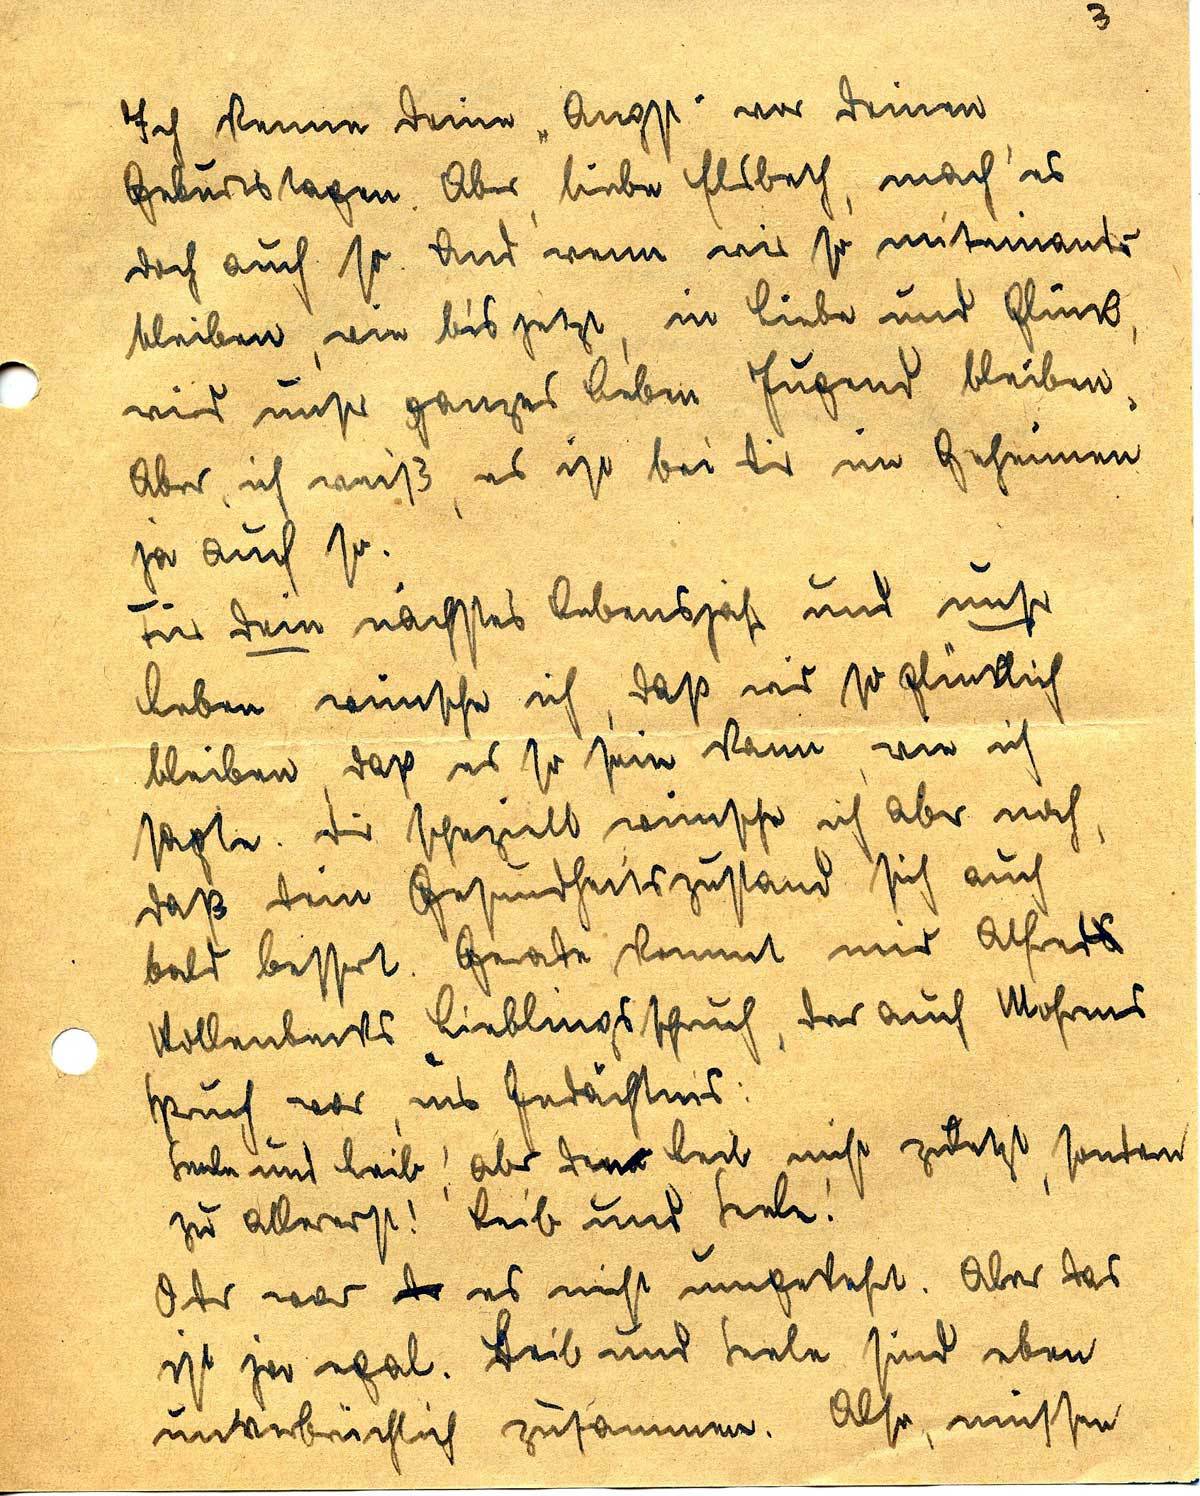 3
Ich kenne deine „Angst" vor deinen
Geburtstagen. Aber, liebe Elsbeth, mach' es
doch auch so. Und wenn wir so miteinander
bleiben, wie bis jetzt, in Liebe und Glück,
wird unser ganzes Leben Jugend bleiben.
Aber, ich weiß, es ist bei dir im Geheimen
ja auch so.
Für dein nächstes Lebensjahr und unser
Leben wünsche ich, daß wir so glücklich
bleiben, daß es so sein kann, wie ich
sagte. Dir speziell wünsche ich aber noch,
daß dein Gesundheitszustand sich auch
bald bessert. Gerade kommt mir Alfred
Lieblingsspruch, der auch
spruch war, ins Gedächtnis:
Seele und Leib! Aber den Leib nicht zuletzt, sondern
zu allererst! Leib und Seele!
Oder war es nicht umgekehrt. Aber das
ist ja egal. Leib und Seele sind eben
unverbrüchlich zusammen. Also, müssen